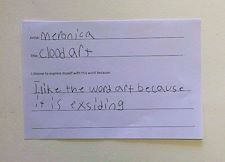 Artist: meronica
Title: clood art
I choose to express myself with this work because:
I like the word art because
it is exsiding